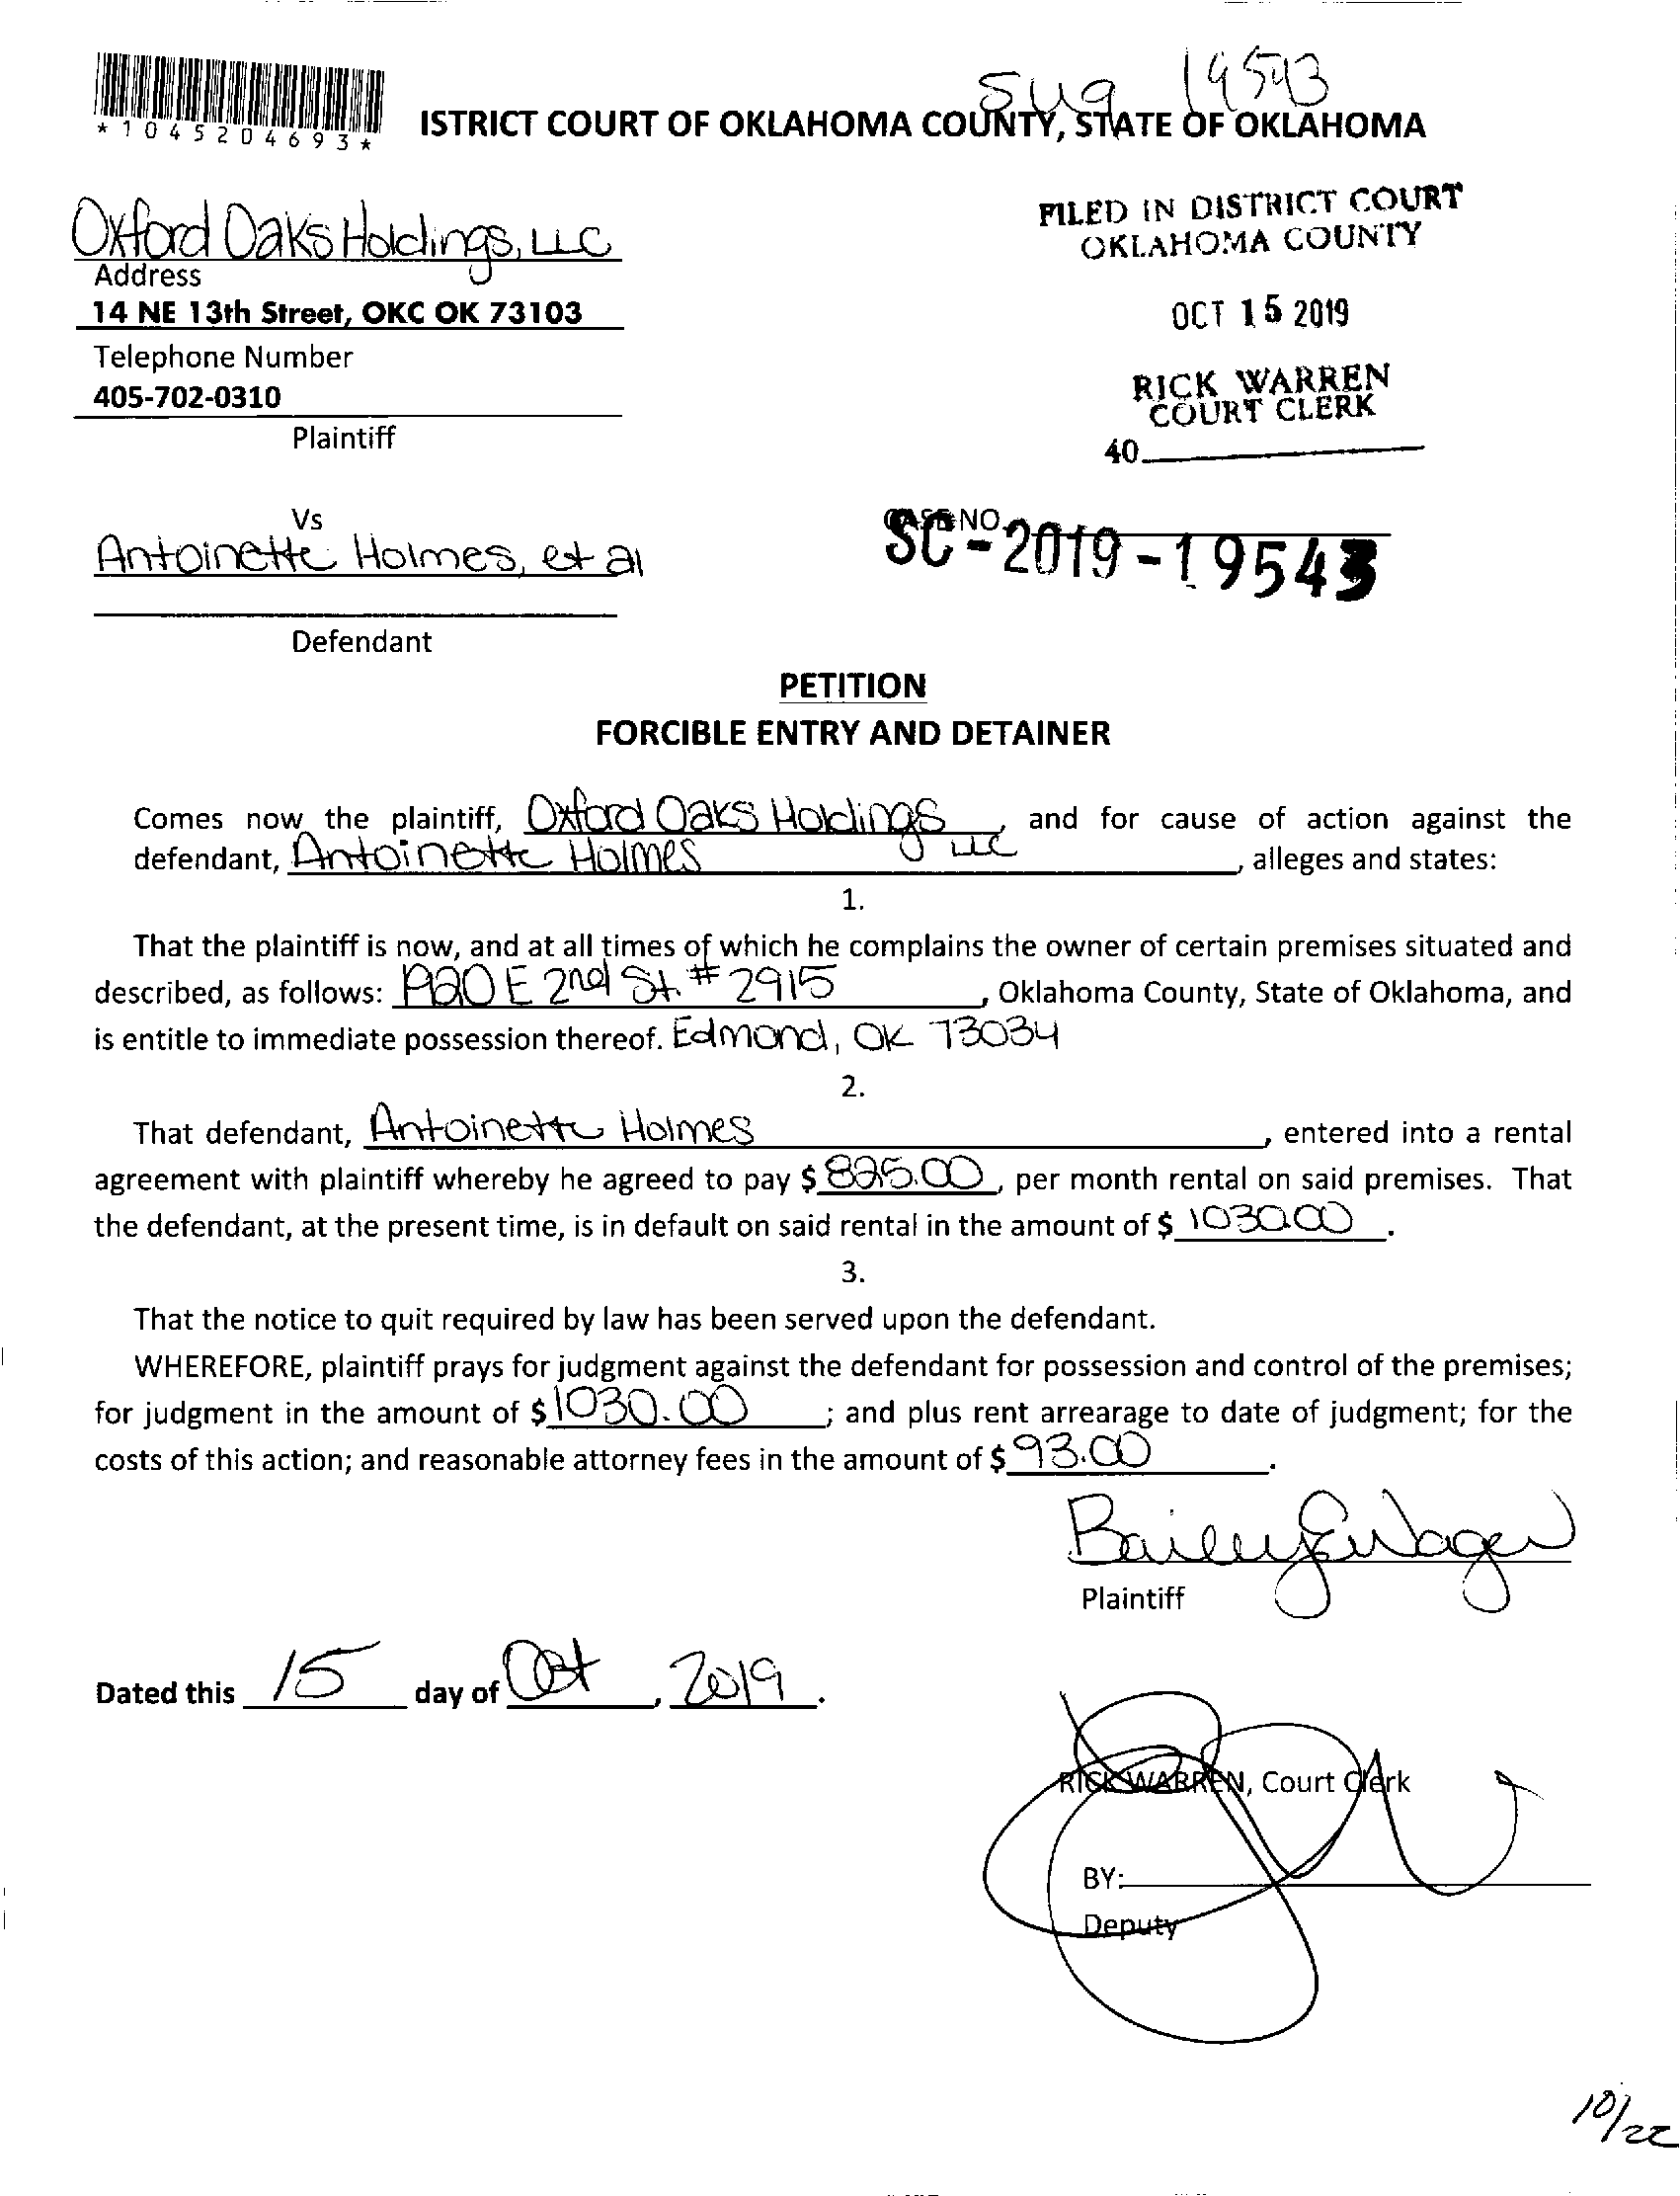 19543
*1045204693*
ISTRICT COURT OF OKLAHOMA COUNTY, STATE OF OKLAHOMA
Oxford Oaks Holdings, LLC
Address
14 NE 13th Street, OKC OK 73103
Telephone Number
405-702-0310
Plaintiff
FILED IN DISTRICT COURT
OKLAHOMA COUNTY
OCT 15 2019
RICK WARREN
COURT CLERK
40
Vs
Antoinette Holmes, et al
Defendant
CASE NO.
SC-2019-19543
PETITION
FORCIBLE ENTRY AND DETAINER
Comes now the plaintiff, Oxford Oaks Holdings LLC, and for cause of action against the
defendant, Antoinette Holmes, alleges and states:
1.
That the plaintiff is now, and at all times of which he complains the owner of certain premises situated and
described, as follows: 1920 E 2nd St. # 2915, Oklahoma County, State of Oklahoma, and
is entitle to immediate possession thereof. Edmond, OK 73034
2.
That defendant, Antoinette Holmes, entered into a rental
agreement with plaintiff whereby he agreed to pay $ 825.00, per month rental on said premises. That
the defendant, at the present time, is in default on said rental in the amount of $ 1030.00.
3.
That the notice to quit required by law has been served upon the defendant.
WHEREFORE, plaintiff prays for judgment against the defendant for possession and control of the premises;
for judgment in the amount of $ 1030.00; and plus rent arrearage to date of judgment; for the
costs of this action; and reasonable attorney fees in the amount of $ 93.00.
Plaintiff
Dated this 15 day of Oct, 2019.
RICK WARREN, Court Clerk
BY:
Deputy
10/22